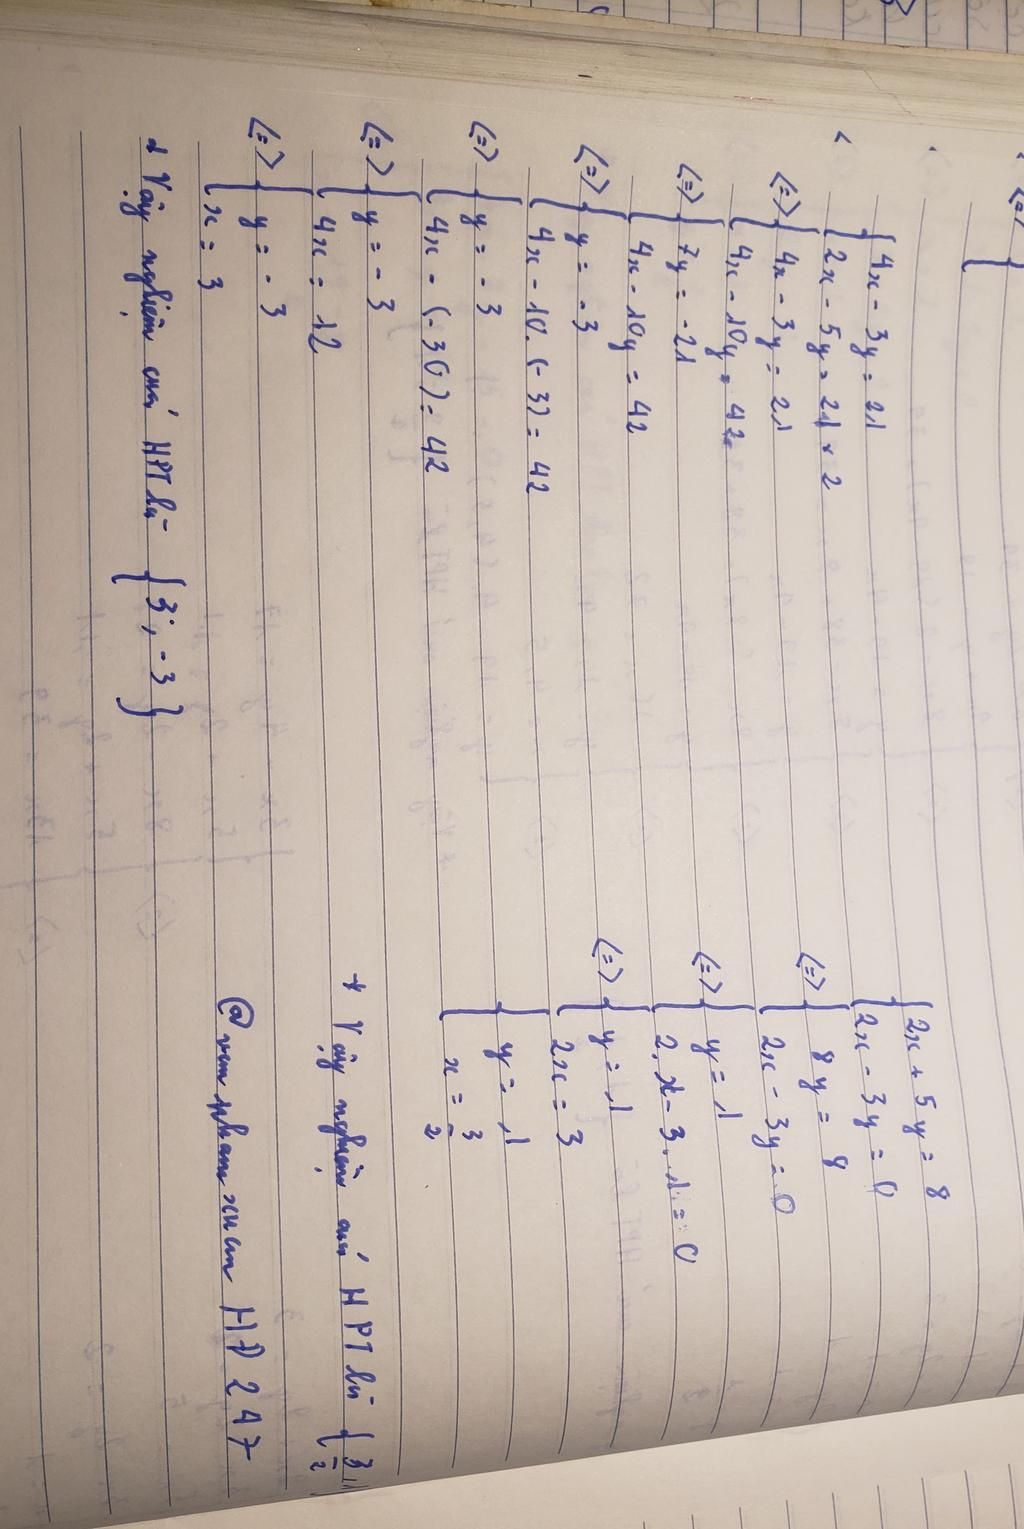 (=) {
{ 4x - 3y = 21
2x - 5y = 21 × 2
(=) { 4x - 3y = 21
4x - 10y = 42
(=) { 7y = -21
4x - 10y = 42
(=) { y = -3
4x - 10.(-3) = 42
(=) { y = -3
4x - (-30) = 42
(=) { y = -3
4x = 12
(=) { y = -3
x = 3
+ Vậy nghiệm của HPT là {3; -3}
{ 2x + 5y = 8
2x - 3y = 0
(=) { 8y = 8
2x - 3y = 0
(=) { y = 1
2.x - 3.1 = 0
(=) { y = 1
2x = 3
{ y = 1
x = 3/2
+ Vậy nghiệm của HPT là { 3/2
HD 247